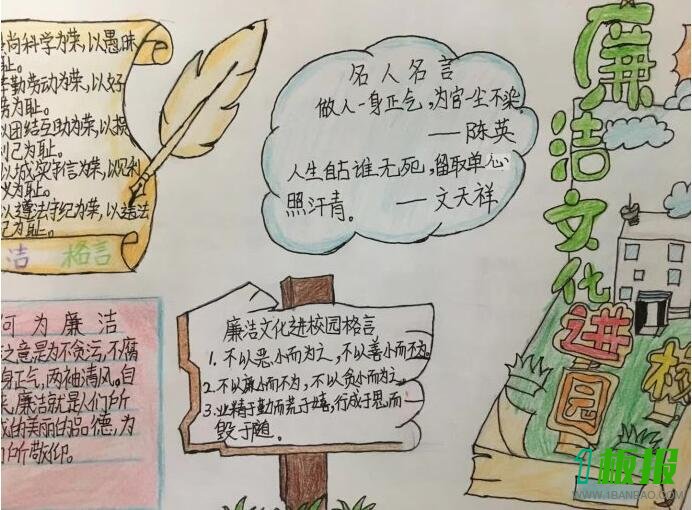 尚科学为荣,以愚昧
耻。
辛勤劳动为荣,以好
劳为耻。
以团结互助为荣,以损
利己为耻。
以诚实守信为荣,以见利
义为耻。
以遵法守纪为荣,以违法
纪为耻。
洁 格言
名人名言
做人一身正气,为官一尘不染。
——陈英
人生自古谁无死,留取单心
照汗青。 ——文天祥
廉洁文化进校园
何为廉洁
之意是为不贪污,不腐
身正气,两袖清风。自
来,廉洁就是人们所
成的美丽的品德,为
们所敬仰。
廉洁文化进校园格言
1. 不以恶小而为之,不以善小而不为。
2. 不以廉小而不为,不以贪小而为之。
3. 业精于勤而荒于嬉,行成于思而
毁于随。
1板报
WWW.1BANBAO.COM